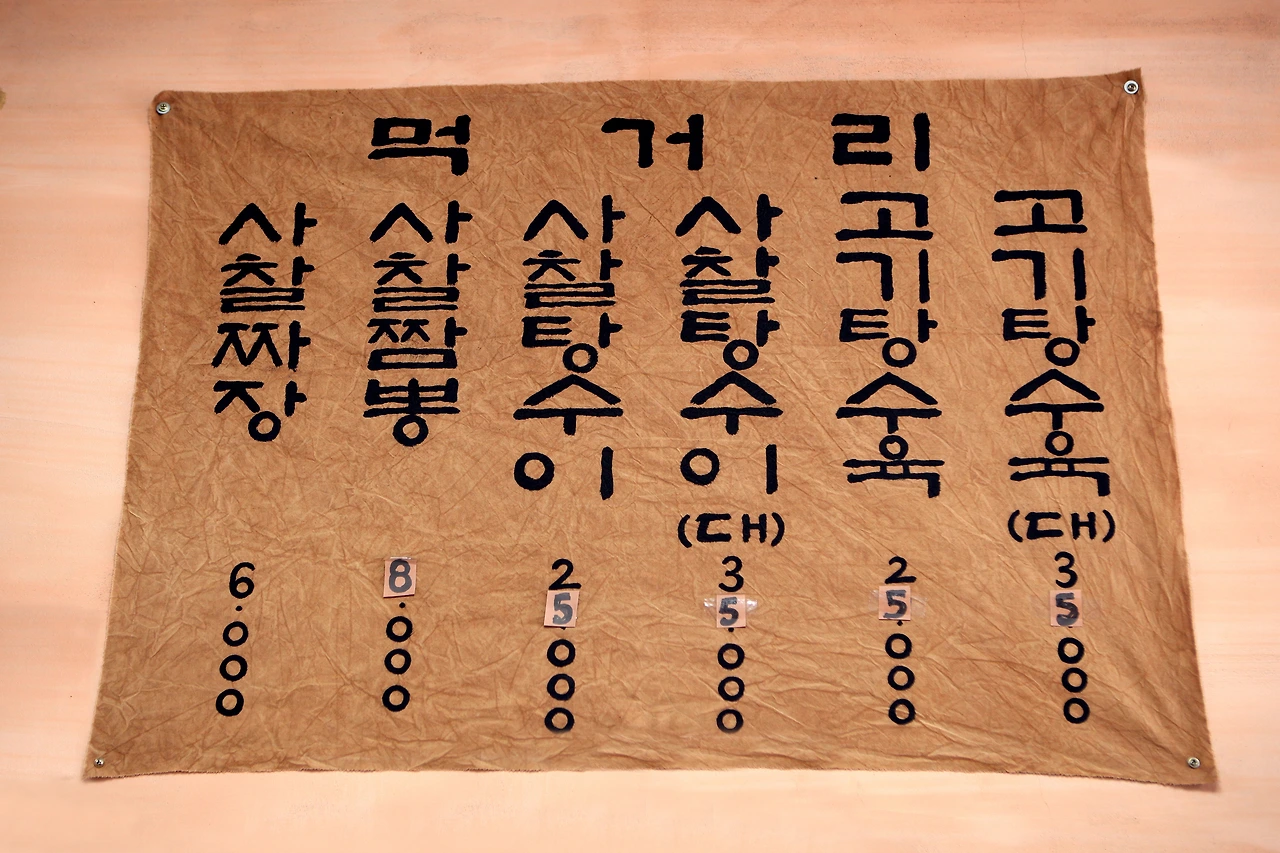 먹거리
사찰짜장 6.000
사찰짬뽕 8.000
사찰탕수이 25.000
사찰탕수이(대) 35.000
고기탕수육 25.000
고기탕수육(대) 35.000